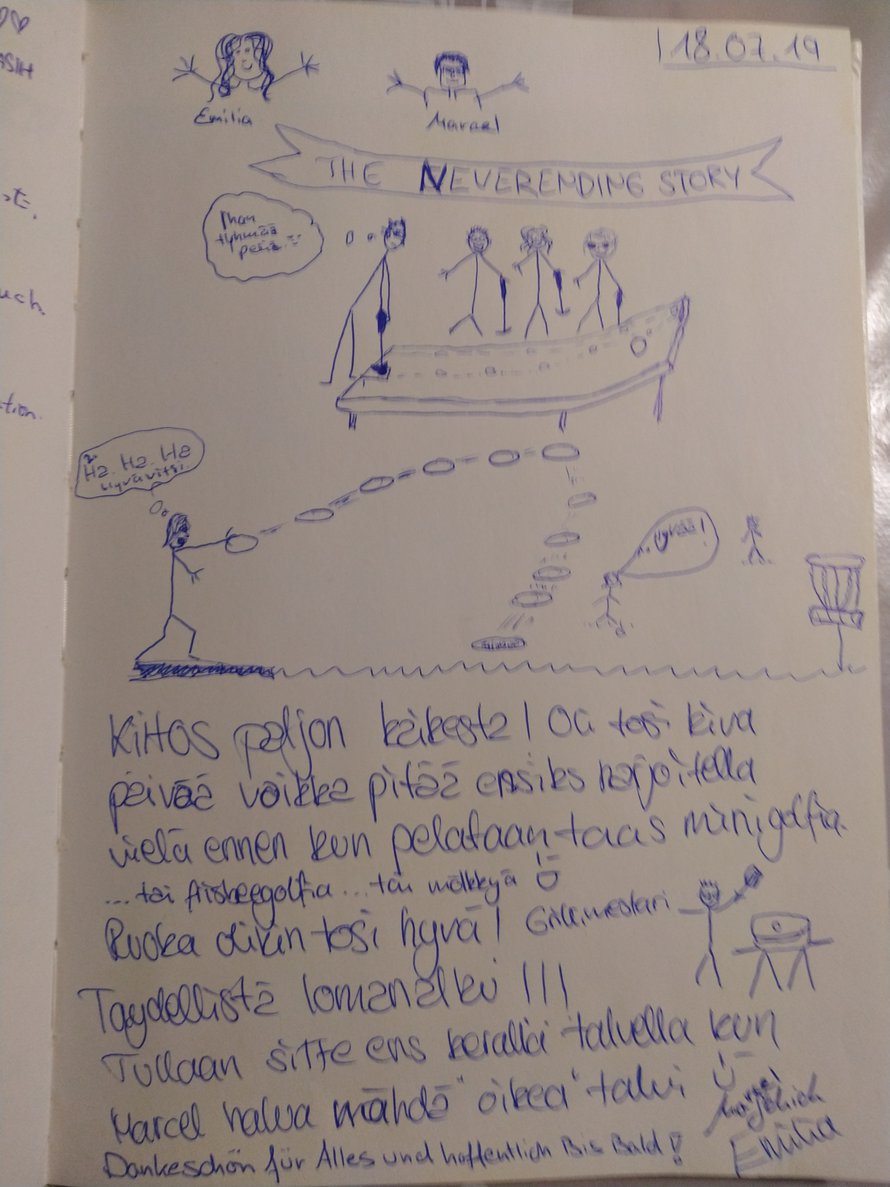 18.07.19
Emilia
Marcel
THE NEVERENDING STORY
Ihan
tyhmää
peliä.
Ha. Ha. Ha
Hyvä vitsi.
... hyvää!
Kiitos paljon kaikesta! Oli tosi kiva
päivää voikka pitää ensiks harjoitella
vielä ennen kun pelataan taas minigolfia.
... tai friskeegolfia ... tai mölkkyä
Ruoka olikin tosi hyvä! Grillimestari
Taydellistä lomanalku!!!
Tullaan sitte ens kerallä talvella kun
Marcel halua nähdä "oikea" talvi
Dankeschön für Alles und hoffentlich Bis Bald!
Marcel
Emilia
uch.
tion.